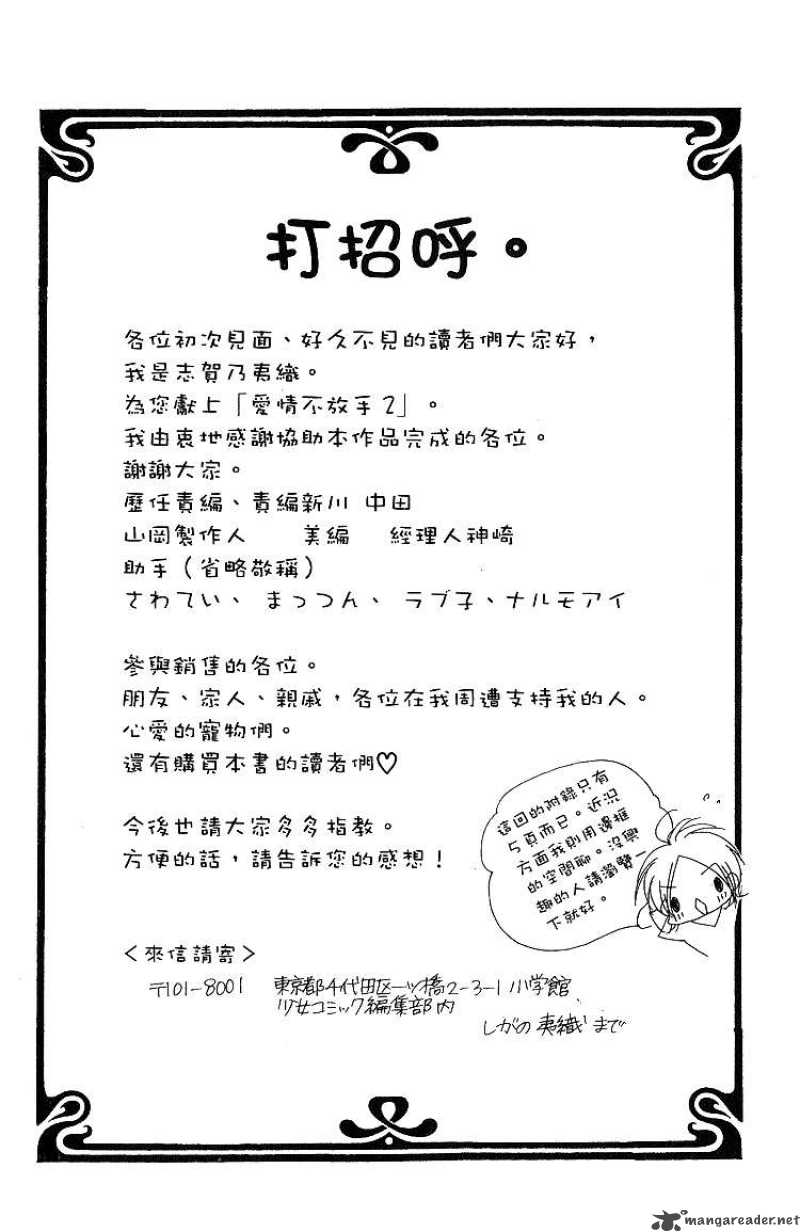 打招呼。
各位初次見面、好久不見的讀者們大家好，
我是志賀乃夷織。
為您獻上「愛情不放手2」。
我由衷地感謝協助本作品完成的各位。
謝謝大家。
歷任責編、責編新川 中田
山岡製作人 美編 經理人神崎
助手（省略敬稱）
さわてい、まっつん、ラブ子、ナルモアイ
參與銷售的各位。
朋友、家人、親戚，各位在我周遭支持我的人。
心愛的寵物們。
還有購買本書的讀者們♡
今後也請大家多多指教。
方便的話，請告訴您的感想！
這回的附錄只有
5頁而已。近況
方面我則用邊框
的空間聊。沒興
趣的人請瀏覽一
下就好。
＜來信請寄＞
〒101-8001 東京都千代田区一ツ橋2-3-1 小学館
少女コミック編集部内
しがの夷織まで
mangareader.net